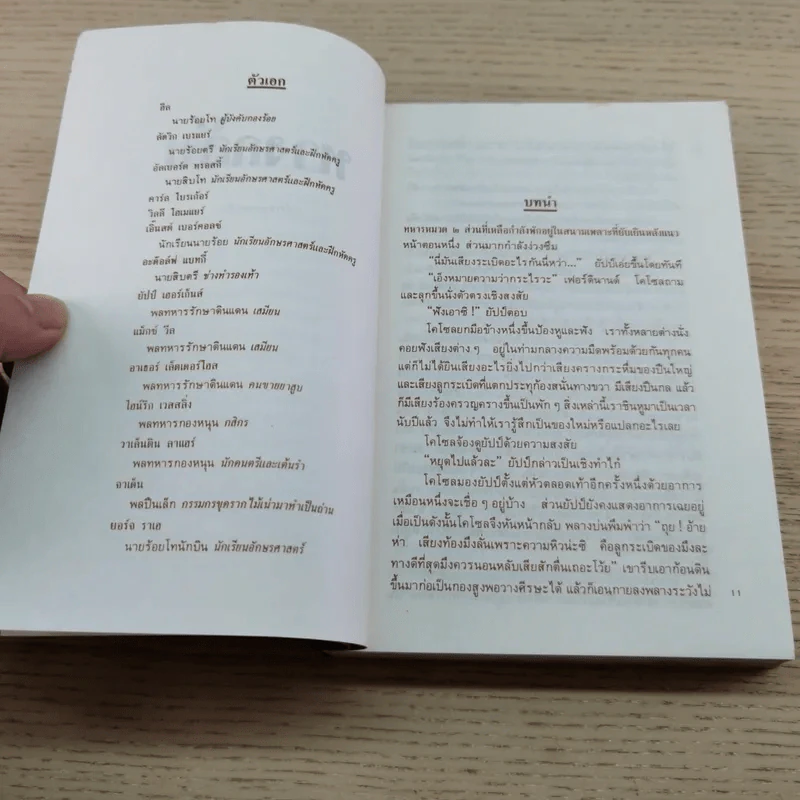 ตัวเอก
ฮีล
นายร้อยโท ผู้บังคับกองร้อย
ลัดวิก เบรเยอร์
นายร้อยตรี นักเรียนอักษรศาสตร์และฝึกหัดครู
อัลเบอร์ต ทรอสกี้
นายสิบโท นักเรียนอักษรศาสตร์และฝึกหัดครู
คาร์ล โบรเก้อร์
วิลลี โฮเมแยร์
เอิ๊นสต์ เบอร์คอลซ์
นักเรียนนายร้อย นักเรียนอักษรศาสตร์และฝึกหัดครู
อะด๊อล์ฟ แบทกี้
นายสิบตรี ช่างทำรองเท้า
ยัปป์ เฮอร์เก็นส์
พลทหารรักษาดินแดน เสมียน
แม็กซ์ วีล
พลทหารรักษาดินแดน เสมียน
อาเธอร์ เล็ดเดอร์โฮส
พลทหารรักษาดินแดน คนขายยาสูบ
ไฮน์ริก เวสสลิ่ง
พลทหารกองหนุน กสิกร
วาเล็นติน ลาแฮร์
พลทหารกองหนุน นักดนตรีและเต้นรำ
อาเด็น
พลปืนเล็ก กรรมกรขุดรากไม้เน่ามาทำเป็นถ่าน
ยอร์จ ราเฮ
นายร้อยโทนักบิน นักเรียนอักษรศาสตร์
บทนำ
ทหารหมวด ๒ ส่วนที่เหลือกำลังพักอยู่ในสนามเพลาะที่ยับเยินหลังแนว
หน้าตอนหนึ่ง ส่วนมากกำลังง่วงซึม
“นี่มันเสียงระเบิดอะไรกันนี่หว่า...” ยัปป์เอ่ยขึ้นโดยทันที
“เอ็งหมายความว่ากระไรวะ” เฟอร์ดินานด์ โคโซลถาม
และลุกขึ้นนั่งตัวตรงเชิงสงสัย
“ฟังเอาซิ !” ยัปป์ตอบ
โคโซลยกมือข้างหนึ่งขึ้นป้องหูและฟัง เราทั้งหลายต่างนั่ง
คอยฟังเสียงต่าง ๆ อยู่ในท่ามกลางความมืดพร้อมด้วยกันทุกคน
แต่ก็ไม่ได้ยินเสียงอะไรยิ่งไปกว่าเสียงครางกระหึ่มของปืนใหญ่
และเสียงลูกระเบิดที่แตกประทุก้องสนั่นทางขวา มีเสียงปืนกล แล้ว
ก็มีเสียงร้องครวญครางขึ้นเป็นพัก ๆ สิ่งเหล่านี้เราชินหูมาเป็นเวลา
นับปีแล้ว จึงไม่ทำให้เรารู้สึกเป็นของใหม่หรือแปลกอะไรเลย
โคโซลจ้องดูยัปป์ด้วยความสงสัย
“หยุดไปแล้วละ” ยัปป์กล่าวเป็นเชิงทำไก๋
โคโซลมองยัปป์ตั้งแต่หัวตลอดเท้าอีกครั้งหนึ่งด้วยอาการ
เหมือนหนึ่งจะเชื่อ ๆ อยู่บ้าง ส่วนยัปป์ยังคงแสดงอาการเฉยอยู่
เมื่อเป็นดังนั้นโคโซลจึงหันหน้ากลับ พลางบ่นพึมพำว่า “ถุย ! อ้าย
ห่า เสียงท้องมึงลั่นเพราะความหิวน่ะซิ คือลูกระเบิดของมึงละ
ทางดีที่สุดมึงควรนอนหลับเสียสักตื่นเถอะโว้ย” เขารีบเอาก้อนดิน
ขึ้นมาก่อเป็นกองสูงพอวางศีรษะได้ แล้วก็เอนกายลงพลางระวังไม่
11